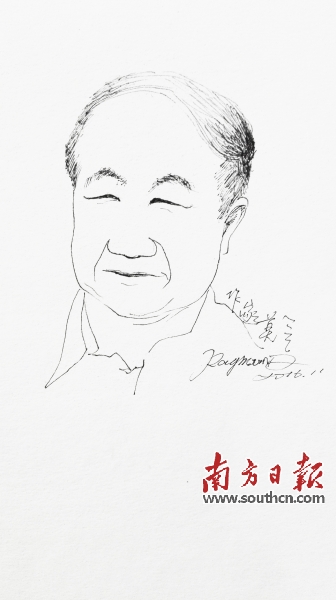 作家莫言
2016.11
南方日報
www.southcn.com